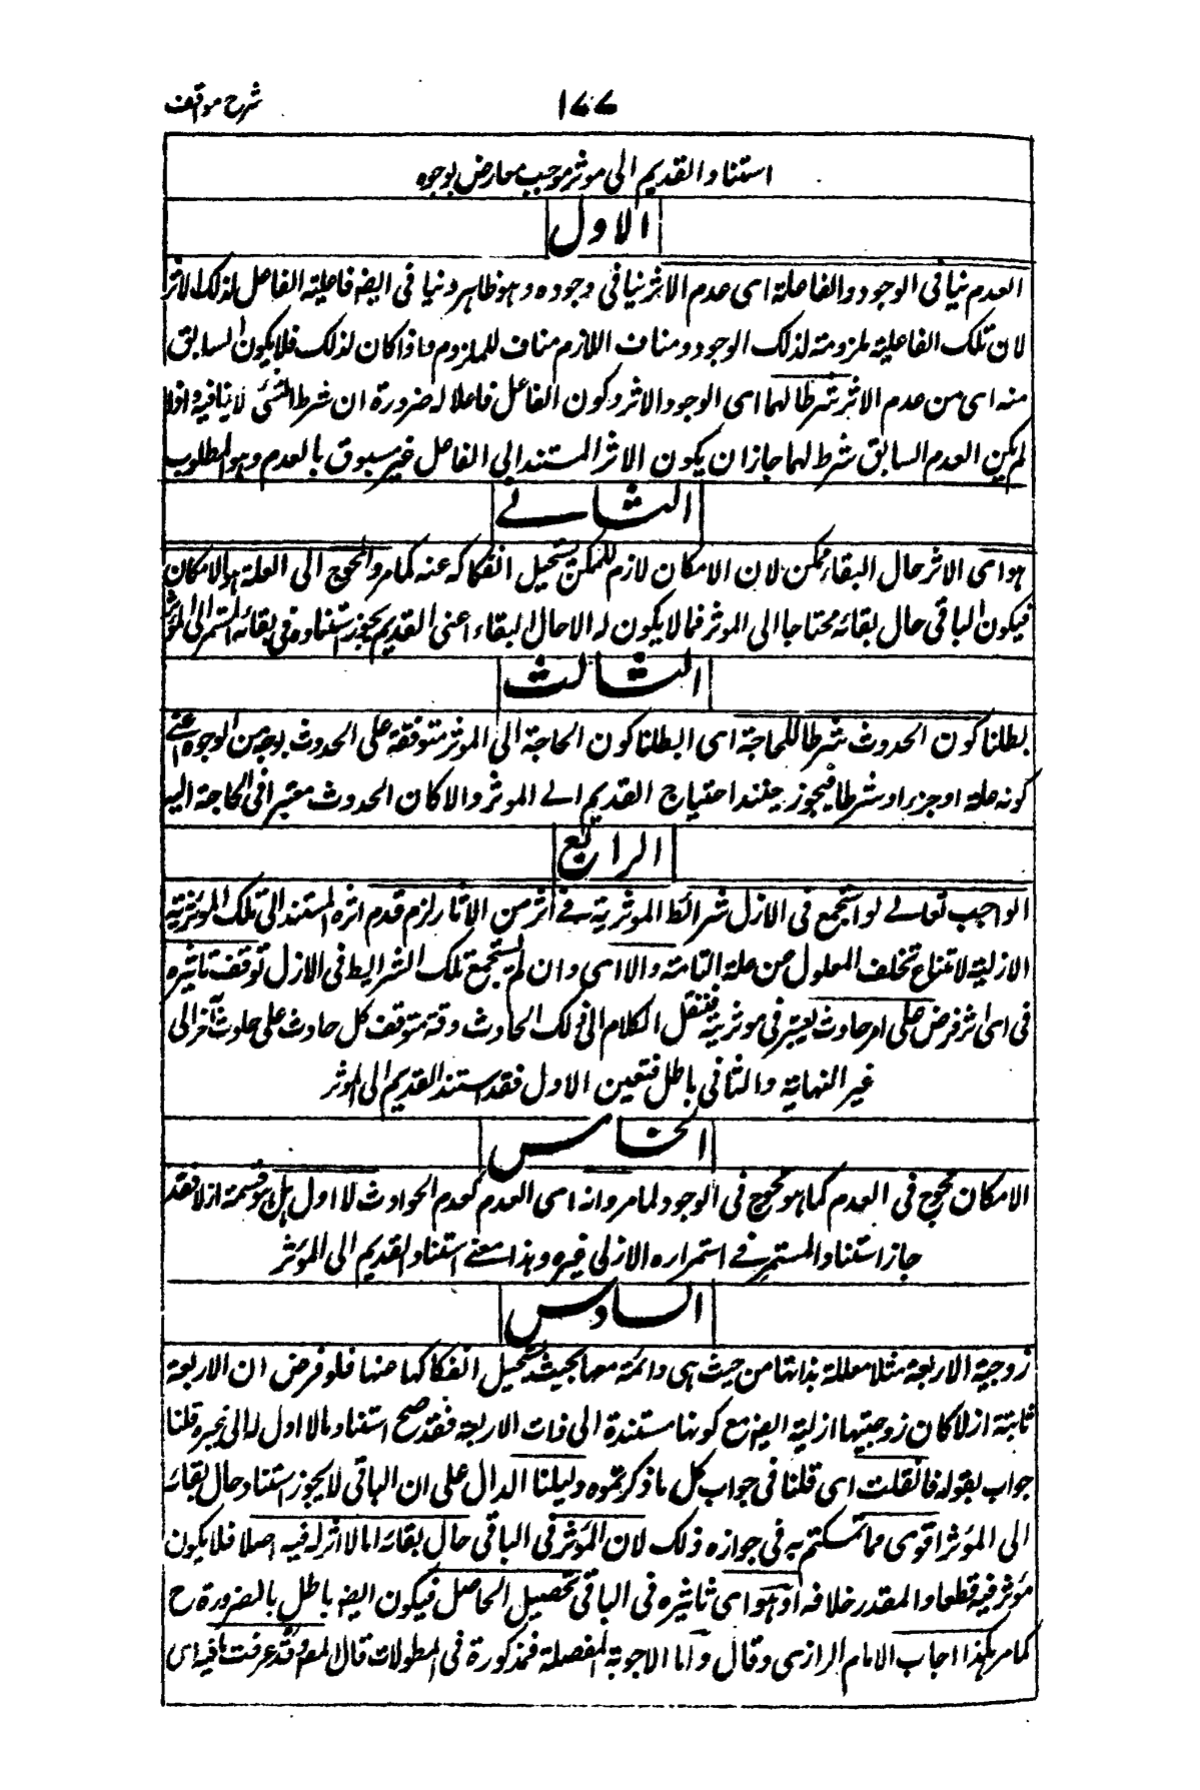 شرح مواقف
١٧٧
استناد القديم الى موثر موجب معارض بوجوه
الاول
العدم ينافى الوجود والفاعلة اى عدم الاثر ينافى وجوده وهو ظاهر وينافى ايضه فاعلية الفاعل لذلك الاثر
لان تلك الفاعلية ملزومة لذلك الوجود ومناف اللازم مناف للملزوم واذا كان لذلك فلا يكون السابق
منه اى من عدم الاثر شرطا لهما اى الوجود الاثر وكون الفاعل فاعلا له ضرورة ان شرط الشئ لا ينافيه واذا
لم يكن العدم السابق شرط لهما جاز ان يكون الاثر المستند الى الفاعل غير مسبوق بالعدم وهو المطلوب
الثانے
هو اى الاثر حال البقاء ممكن لان الامكان لازم للممكن يستحيل انفكاكه عنه كما مر والمحوج الى العلة هو الامكان
فيكون الباقى حال بقائه محتاجا الى الموثر فما لا يكون له الا حال البقاء اعنى القديم يجوز استناده فى بقائه المستمر الى الموثر
الثالث
بطلنا كون الحدوث شرطا للحاجة اى ابطلنا كون الحاجة الى الموثر متوقفة على الحدوث بوجه من الوجوه اعنے
كونه علة او جزءا او شرطا فيجوز حينئذ احتياج القديم الے الموثر والا كان الحدوث معتبرا فى الحاجة اليه
الرابع
الواجب تعالے لو استجمع فى الازل شرائط الموثرية فے اثر من الاثار لزم قدم اثره المستند الى تلك الموثرية
الازلية لامتناع تخلف المعلول عن علة التامة والا اى وان لم يستجمع تلك الشرايط فى الازل توقف تاثيره
فى اى اثر فرض على امر حادث يعتبر فى موثرية فننقل الكلام الى ذلك الحادث وقة متوقف كل حادث على حادث آخر الى
غير النهاية والثانى باطل فتعين الاول فقد استند القديم الى الموثر
الخامس
الامكان محوج فى العدم كما هو محوج فى الوجود لما مر وانه اى العدم كعدم الحوادث لا اول له بل هو مستمر ازلا فقد
جاز استناد المستمر فے استمراره الازلى غيره وهذا معنے استناد القديم الى المؤثر
السادس
زوجية الاربعة مثلا معللة بذاتها من حيث هى دائمة معها بحيث يستحيل انفكاكها عنها فلو فرض ان الاربعة
ثابتة ازلا كان زوجيتها ازلية ايضه مع كونها مستندة الى ذات الاربعة فقد صح استناد ما لا اول له الى غيره قلنا
جواب لقوله فان قلت اى قلنا فى جواب كل ما ذكرتموه دليلنا الدال على ان الباقى لا يجوز استناده حال بقائه
الى المؤثر اقوى مما تمسكتم به فى جوازه ذلك لان المؤثر فى الباقى حال بقائه اما لا اثر له فيه اصلا فلا يكون
مؤثر فيه قطعا والمقدر خلافه او هو اى تاثيره فى الباقى تحصيل الحاصل فيكون ايضه باطل بالضرورة ح
كما مر هكذا اجاب الامام الرازى وقال واما الاجوبة المفصلة فمذكورة فى المطولات قال المصـ وقد عرفت ما فيه اى